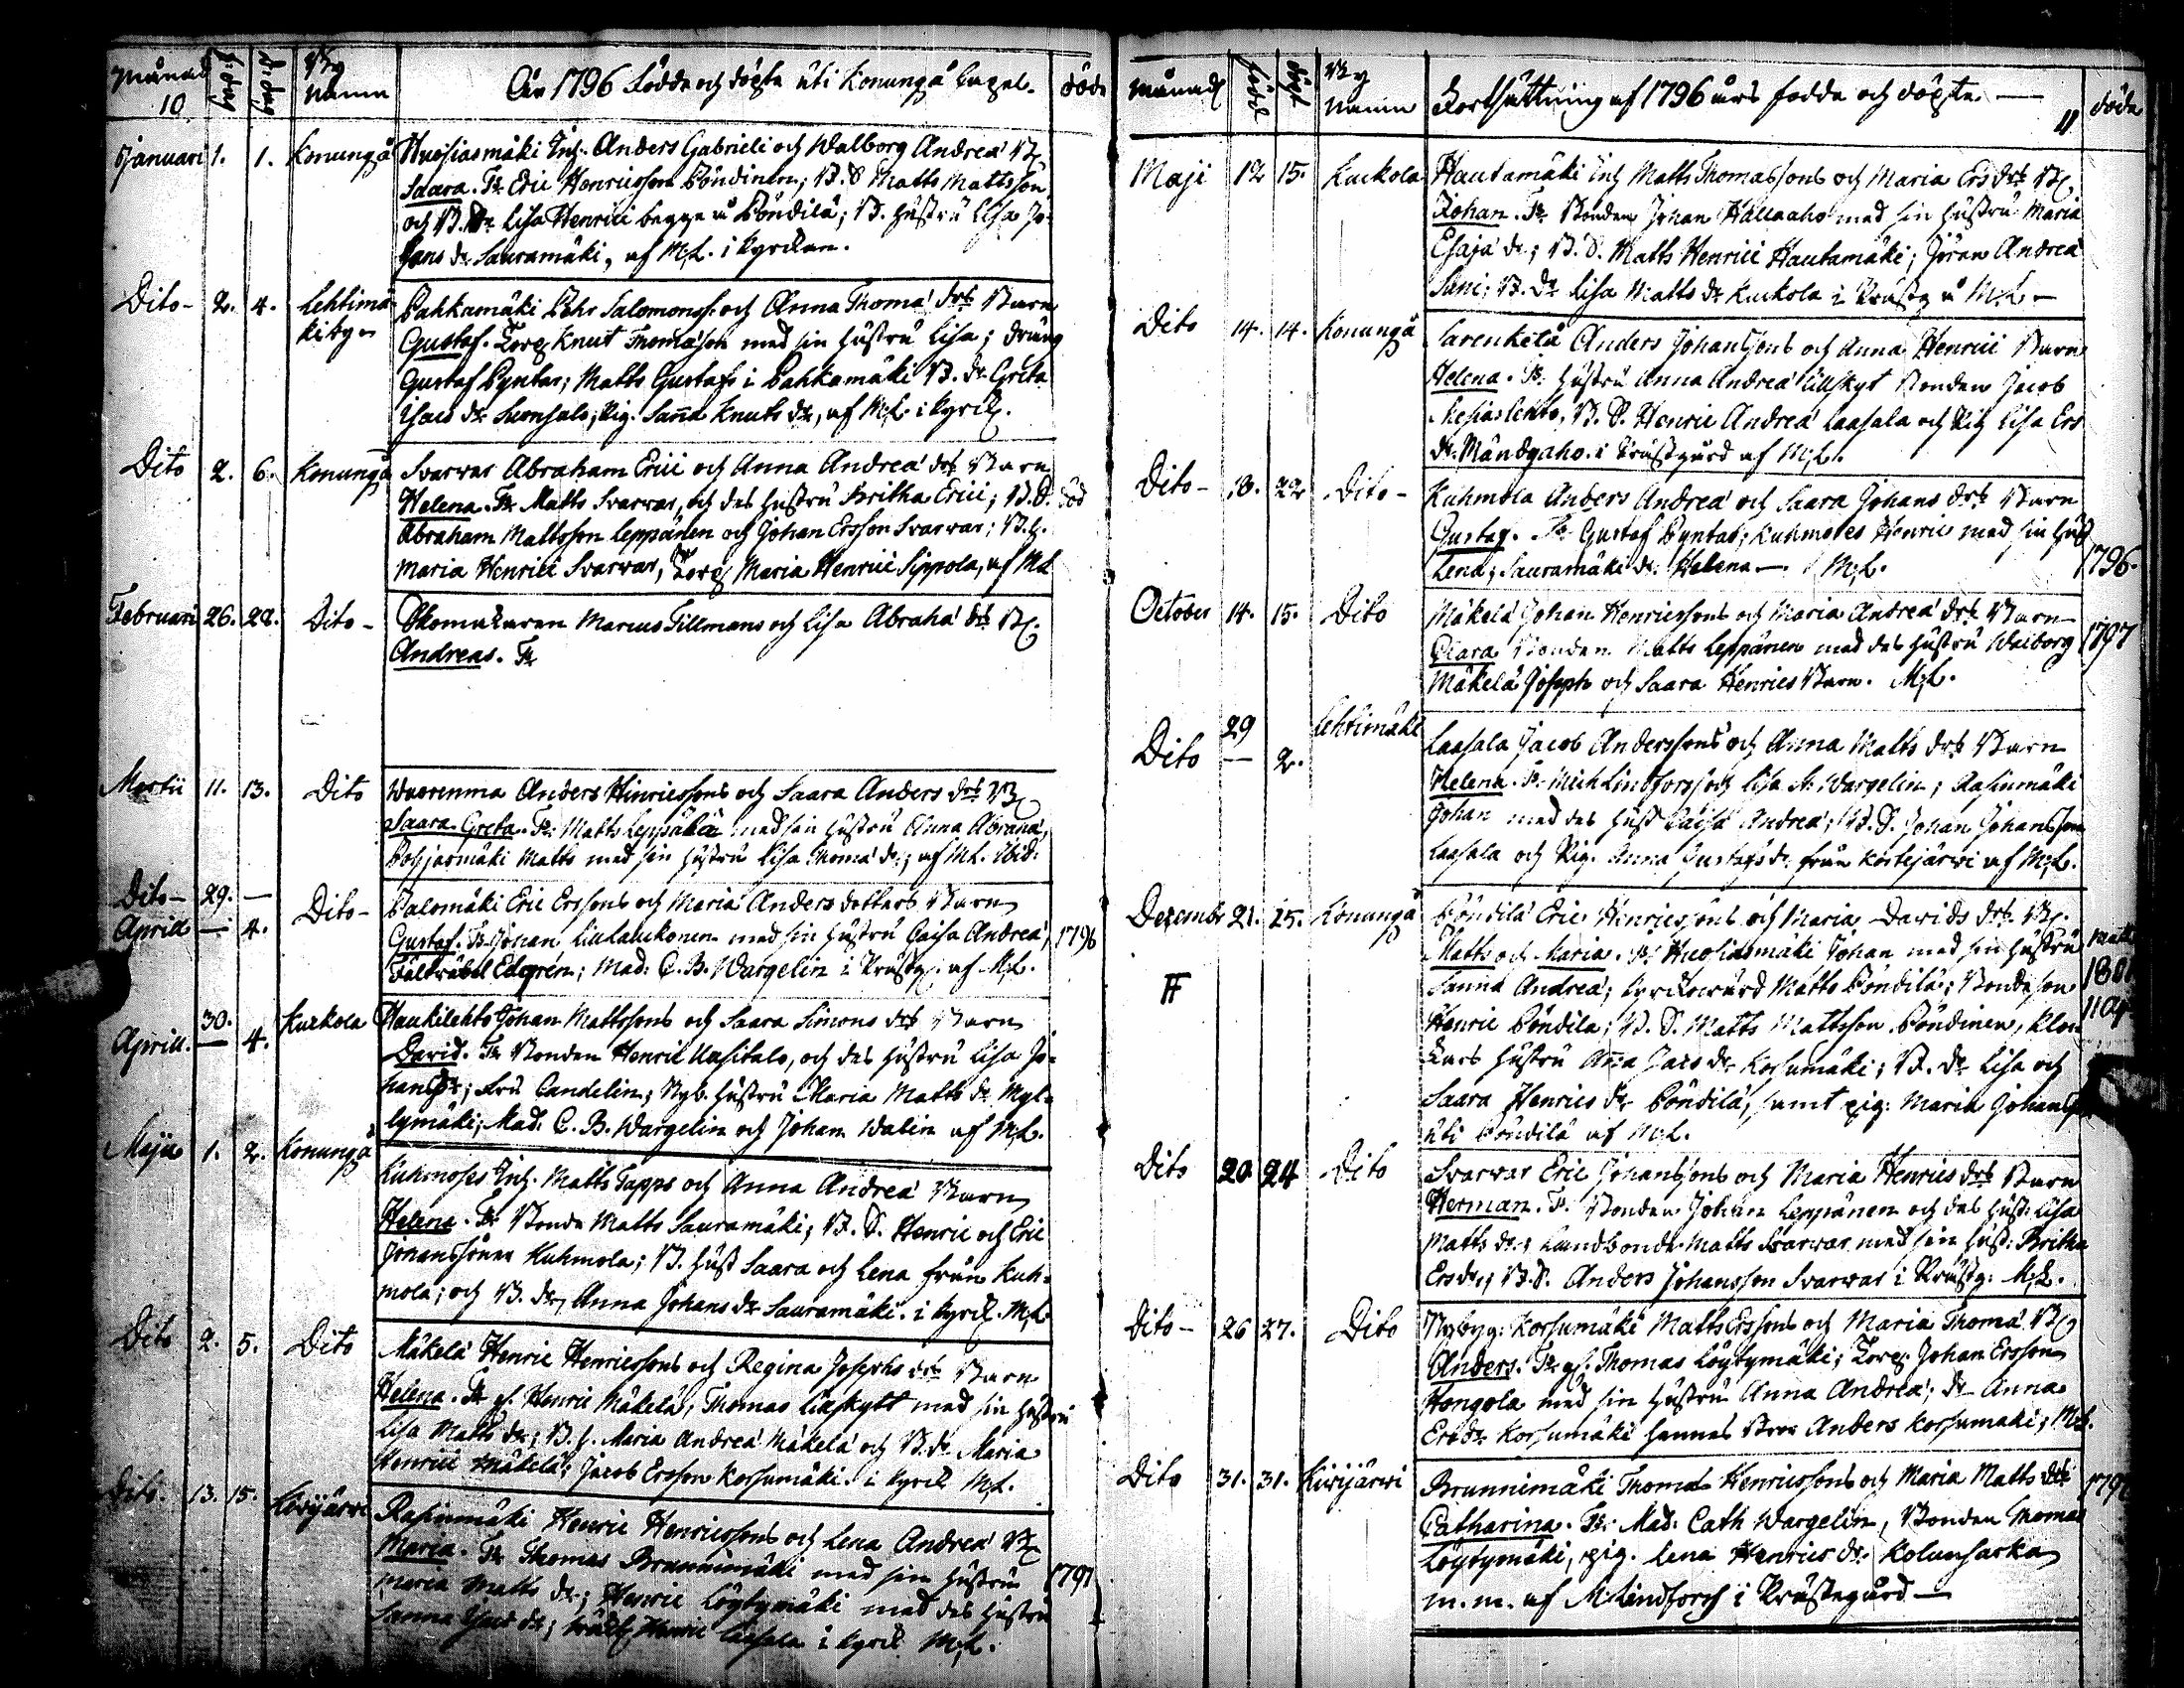 Månad 10. f: dag d: dag By Namn År 1796 Födde och döpte uti Konungå Capel. döde
Januari 1. 1. Konungå Huosiasmäki Inh. Anders Gabrieli och Walborg Andreæ B.
Saara. Fr. Eric Henricsson Böndinen; B. S. Matts Mattsson
och B. Dr Lisa Henrici begge å Böndilä; B. hustru Lisa Jo-
hans dr Sauramäki, af M.L. i kyrckan.
Dito 2. 4. Lehtimä-
kiby Pahkamäki Pehr Salomonss. och Anna Thomæ drs Barn
Gustaf. Torp. Knut Thomæson med sin hustru Lisa; dräng
Gustaf Pyntar; Matts Gustafs i Pahkamäki B. dr Greta
Isacs dr Suonsalo; Pig. Sanna Knuts dr, af M.L. i kyrck.
Dito 2. 6. Konungå Svarvar Abraham Erici och Anna Andreæ drs Barn
Helena. Fr. Matts Svarvar, och des hustru Britha Erici; B.S. död
Abraham Mattsson Leppänen och Johan Ersson Svarvar; B.h.
Maria Henrici Svarvar, Torp. Maria Henrici Sippola, af ML
Februari 26. 28. Dito Skomakaren Marcus Tillmans och Lisa Abrahæ drs B.
Andreas. Fr
Martii 11. 13. Dito Wuorenma Anders Hinricssons och Saara Anders drs B.
Saara Greta. Fr. Matts Leppälä med sin hustru Anna Abrahæ,
Pohjasmäki Matts med sin hustru Lisa Thomæ dr; af ML. Ibid:
Dito 29. —
Aprill — 4. Dito Palomäki Eric Erssons och Maria Anders dotters Barn
Gustaf. Fr. Johan Lillalukonen med sin hustru Caisa Andreæ, 1796
Fältväbel Edgrén; Mad: C. B. Wargelin i Prästg. af M.L.
30.
Aprill. — 4. Kuckola Haukilehto Johan Mattssons och Saara Simons drs Barn
David. Fr. Bonden Henric Uusitalo, och des hustru Lisa Jo-
hans dr; Fru Candelin; Nyb. hustru Maria Matts dr Myl-
lymäki; Mad: C. B. Wargelin och Johan Walin af M.L.
Maji 1. 2. Konungå Kuhmoses Inh. Matts Tapps och Anna Andreæ Barn
Helena. Fr. Bonde Matts Sauramäki; B. S. Henric och Eric
Johanssöner Kuhmola; B. hust Saara och Lena från Kuh-
mola; och B. dr, Anna Johans dr Sauramäki. i kyrck. M.L
Dito 2. 5. Dito Mäkelä Henric Henricssons och Regina Josephs drs Barn
Helena. Fr gl. Henric Mäkelä, Thomas Lillskytt med sin hustru
Lisa Matts dr; B.h. Maria Andreæ Mäkelä och B.dr Maria
Henrici Mäkelä; Jacob Ersson Korsumäki. i kyrck M.L.
Dito. 13. 15. Kivijärvi Rasinmäki Henric Henricssons och Lena Andreæ B.
Maria. Fr Thomas Brunnimäki med sin hustru 1797
Maria Matts dr; Henric Löytymäki med des hustru
Sanna Isacs dr; Henric Laasala i kyrck M.L.
Månad född döpt By Namn Fortsättning af 1796 års födde och döpte. — 11 döde
Maji 12 15. Kuckola Hautamäki Inh. Matts Thomassons och Maria Ers drs B.
Johan. Fr. Bonden Johan Hallaaho med sin hustru Maria
Esajæ dr; B. S. Matts Henrici Hautamäki; Jöran Andreæ
Sani; B. Dr Lisa Matts dr Kuckola i Prästg. å M.L.
Dito 14. 14. Konungå Sarenketå Anders Johanssons och Anna Henrici Barn
Helena. Fr. hustru Anna Andreæ Lillskyt Bonden Jacob
Mesiaslehto, B. S. Henric Andreæ Laasala och Pig Lisa Ers
dr Mändyaho. i Prästgård af M.L.
Dito 18. 22 Dito Kuhmola Anders Andreæ och Saara Johans drs Barn
Gustaf. Fr. Gustaf Pyntar; Kuhmoses Henric med sin hust
Lena; Sauramäki dr. Helena — M.L. 1796.
October 14. 15. Dito Mäkelä Johan Henricssons och Maria Andreæ drs Barn
Clara Bonden Matts Leppänen med des hustru Walborg 1797
Mäkelä Joseph och Saara Henrics Barn. M.L.
29
Dito — 2. Lehtimäki Laasala Jacob Anderssons och Anna Matts drs Barn
Helena. Fr. Mich Lindforss och Lisa St. Wargelin; Rasinmäki
Johan med des hust Caisa Andreæ; B. S. Johan Johansson
Laasala och Pig. Anna Gustafs dr från Kortejärvi af M.L.
December 21. 25. Konungå Böndilä Eric Henricssons och Maria Davids drs B.
Matts och Maria. Fr. Huosiasmäki Johan med sin hustru Matts
Sanna Andreæ; kyrckovärd Matts Böndilä; Bondeson 180
Henric Böndilä; B. S. Matts Mattsson Böndinen, Kloc-
kars hustru Anna Isacs dr Korsumäki; B. dr Lisa och
Saara Henrics dr Böndilä, samt pig: Maria Johans
uti Böndilä af M.L.
Dito 20 24 Dito Svarvar Eric Johanssons och Maria Henrics drs Barn
Herman. Fr. Bonden Johan Leppänen och des hust: Lisa
Matts dr; Landbonde Matts Svarvar med sin hust: Britha
Ers dr; B.S. Anders Johansson Svarvar i Prästg: M.L.
Dito 26 27. Dito Nybyg: Korsumäki Matts Erssons och Maria Thomæ B.
Anders. Fr gl. Thomas Löytymäki; Torp. Johan Ersson
Hongola med sin hustru Anna Andreæ; dr Anna
Ers dr Korsumäki hennes Bror Anders Korsumäki; M.L.
Dito 31. 31. Kivijärvi Brunnimäki Thomas Henricssons och Maria Matts drs 179
Catharina. Fr. Mad: Cath Wargelin, Bonden Thomas
Löytymäki, pig. Lena Henrics dr. Kolunsarka
m.m. af M:Lindforss i Prästegård —